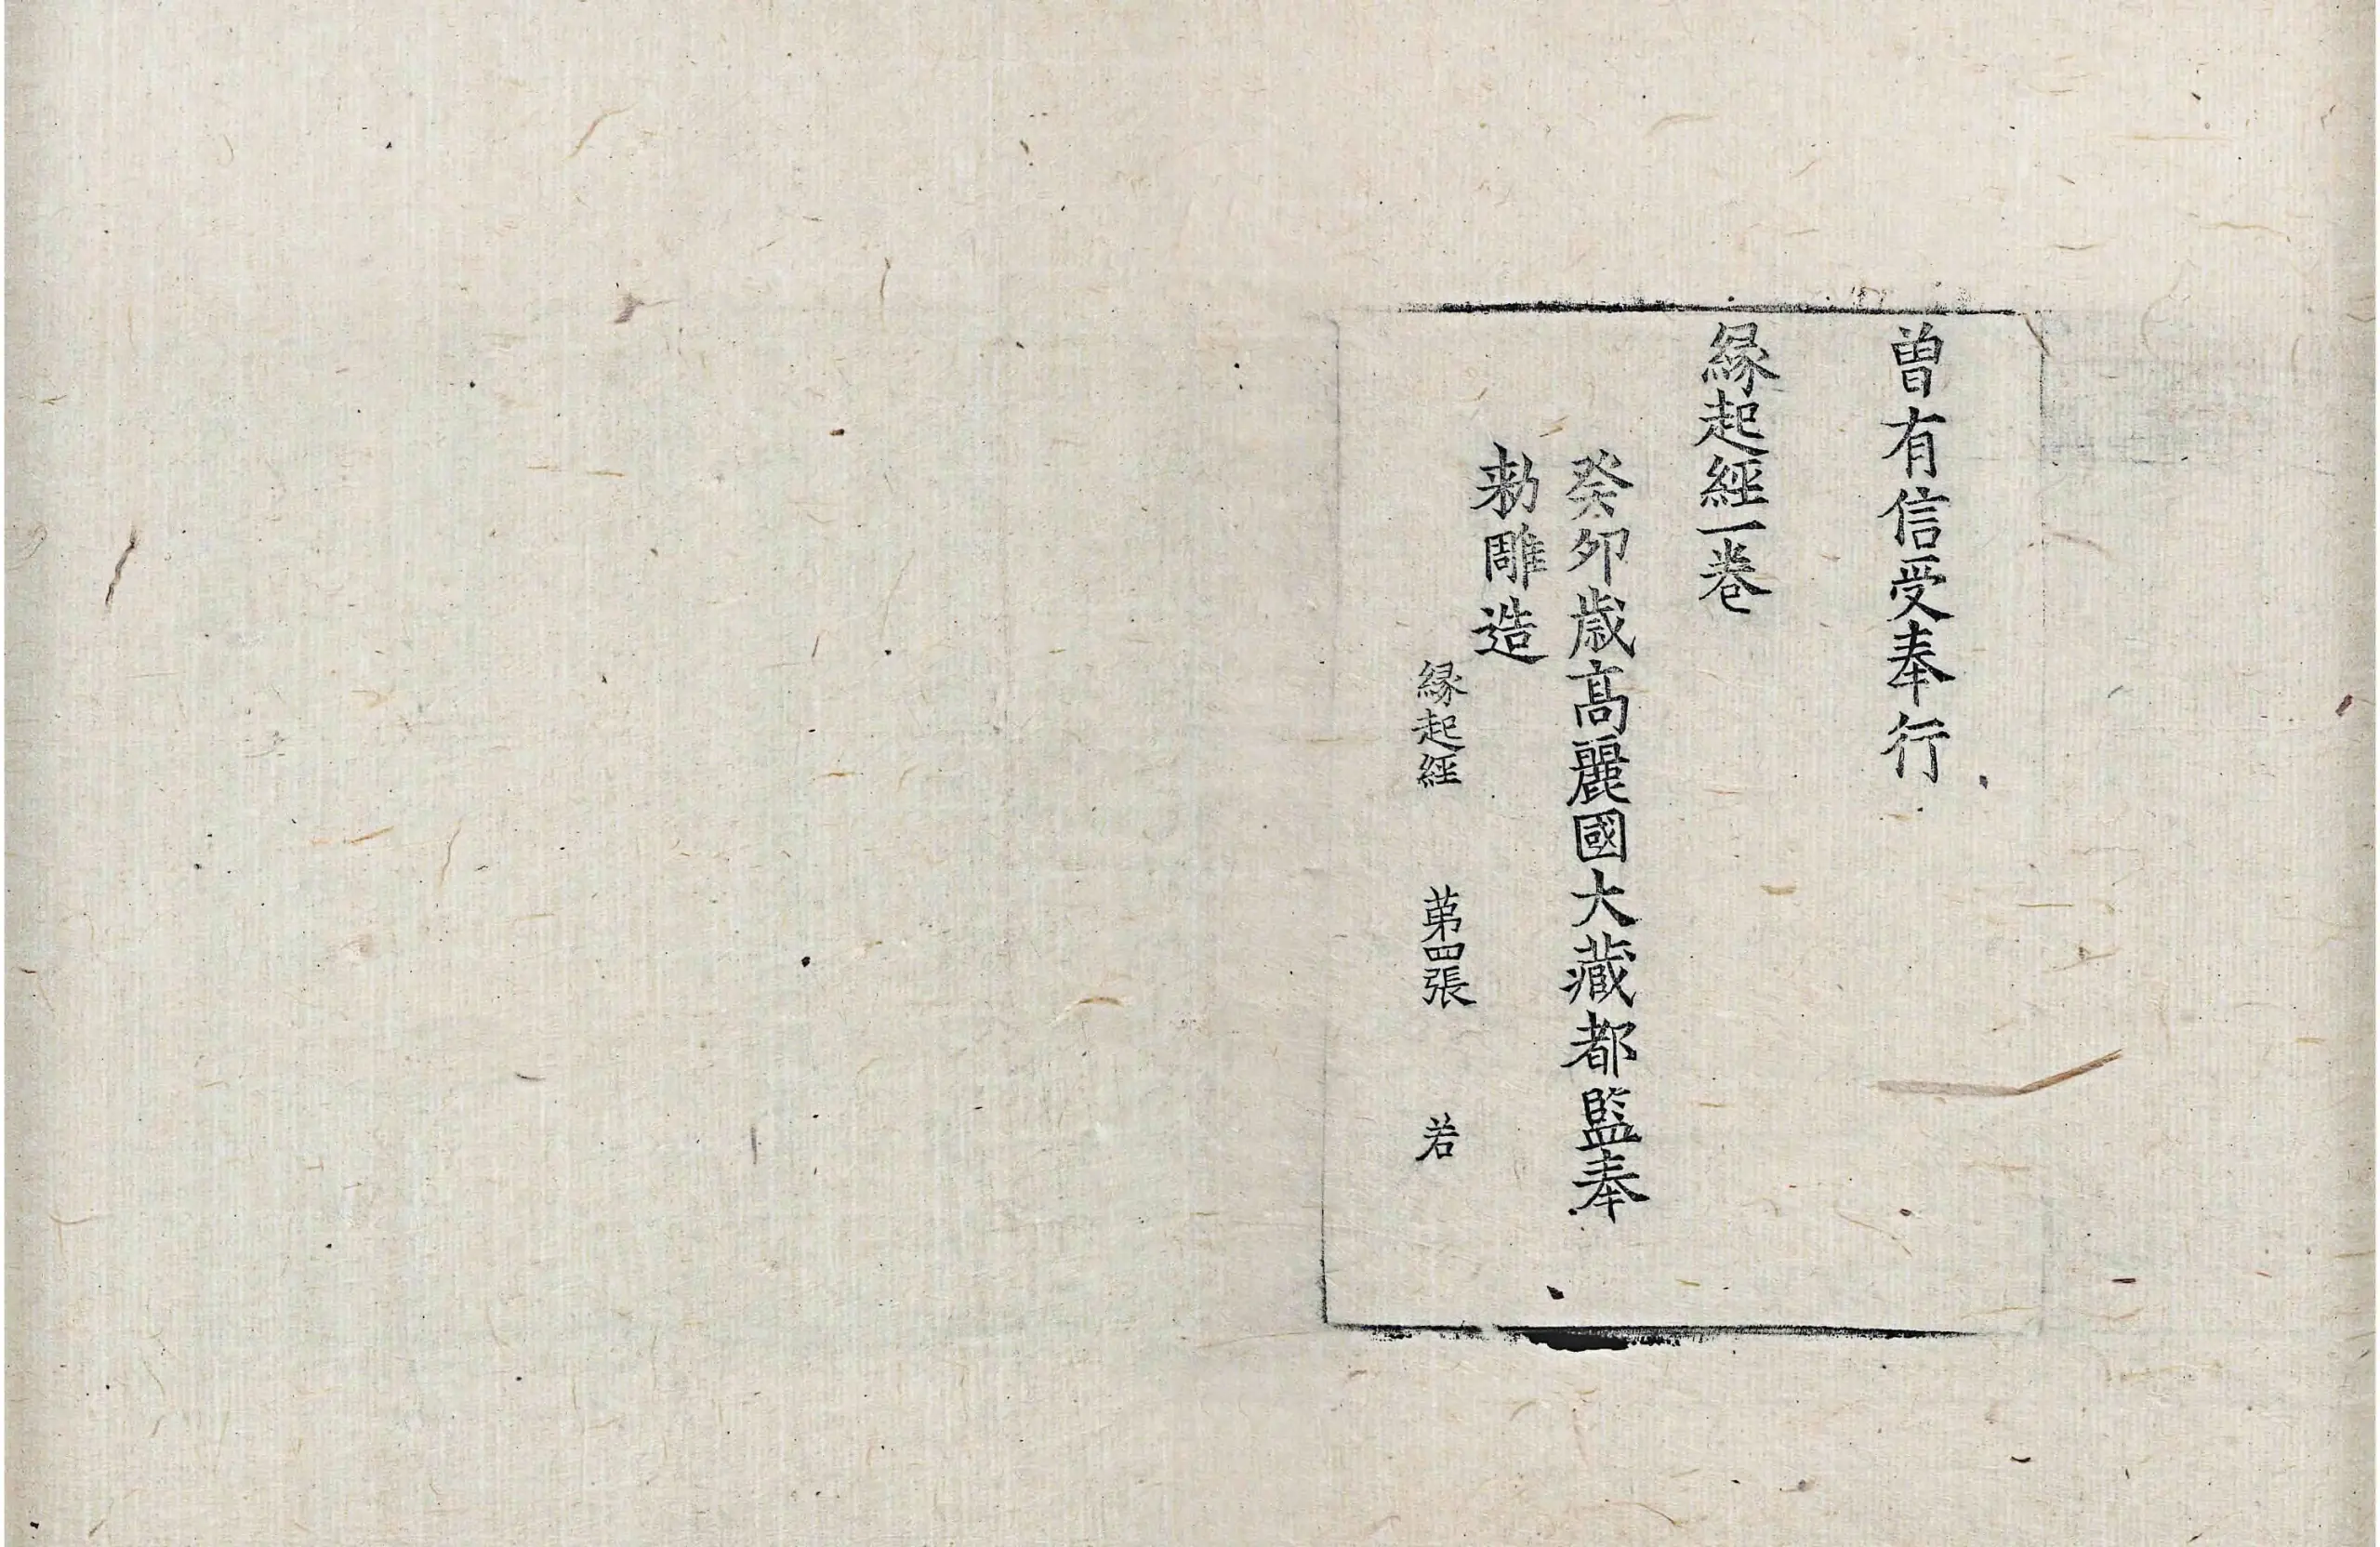 曽有信受奉行
縁起經一卷
癸卯歳高麗國大藏都監奉
勑雕造
縁起經 苐四張 若